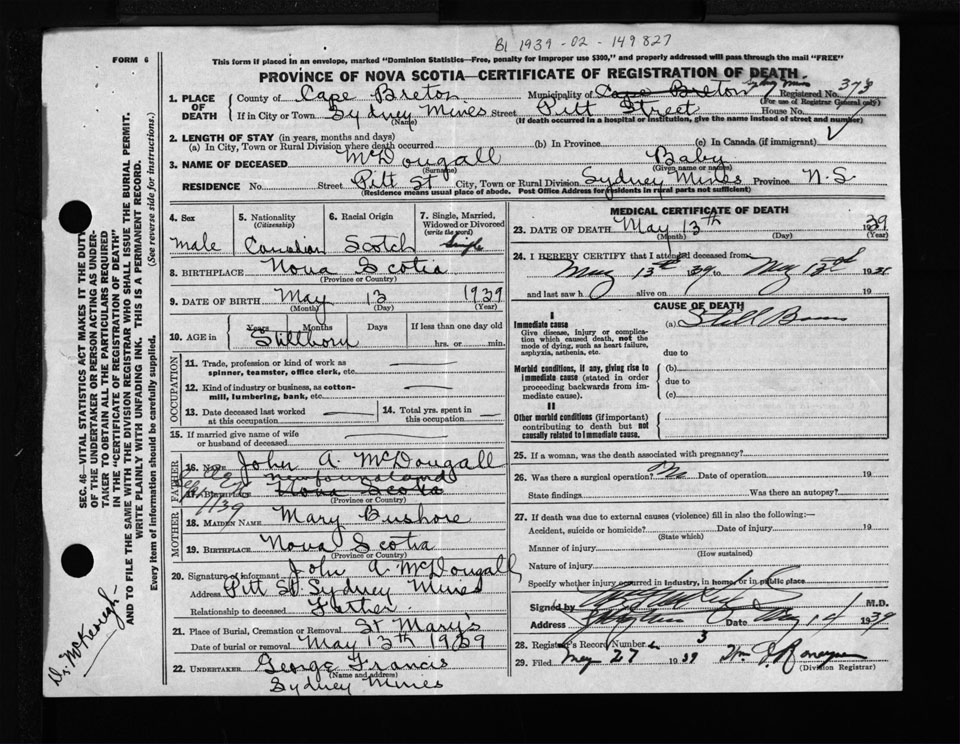 B1 1939 - 02 - 149827
FORM 6
This form if placed in an envelope, marked "Dominion Statistics—Free, penalty for improper use $300," and properly addressed will pass through the mail "FREE"
PROVINCE OF NOVA SCOTIA—CERTIFICATE OF REGISTRATION OF DEATH
1. PLACE OF DEATH
County of Cape Breton Municipality of Cape Breton Sydney Mines Registered No. 373
(For use of Registrar General only)
If in City or Town Sydney Mines Street Pitt Street House No.
(Name) (If death occurred in a hospital or institution, give the name instead of street and number)
2. LENGTH OF STAY (in years, months and days)
(a) In City, Town or Rural Division where death occurred (b) In Province (c) In Canada (if immigrant)
3. NAME OF DECEASED McDougall Baby
(Surname) (Given name or names)
RESIDENCE No. Street Pitt St City, Town or Rural Division Sydney Mines Province N.S
(Residence means usual place of abode. Post Office Address for residents in rural parts not sufficient)
4. Sex
male
5. Nationality
(Citizenship)
Canadian
6. Racial Origin
Scotch
7. Single, Married, Widowed or Divorced
(write the word)
Single
8. BIRTHPLACE Nova Scotia
(Province or Country)
9. DATE OF BIRTH May 13 1939
(Month) (Day) (Year)
10. AGE in
Years Months Days If less than one day old
Stillborn hrs. or min.
OCCUPATION
11. Trade, profession or kind of work as spinner, teamster, office clerk, etc.
12. Kind of industry or business, as cotton-mill, lumbering, bank, etc.
13. Date deceased last worked at this occupation
14. Total yrs. spent in this occupation
15. If married give name of wife or husband of deceased
FATHER
16. Name John A. McDougall
newfoundland
17. Birthplace Nova Scotia
(Province or Country)
MOTHER
18. MAIDEN NAME Mary Bushore
19. BIRTHPLACE Nova Scotia
(Province or Country)
20. Signature of informant John A. McDougall
Address Pitt St. Sydney Mines
Relationship to deceased Father
21. Place of Burial, Cremation or Removal St Mary's
Date of burial or removal May 13th 1939
22. UNDERTAKER George Francis
(Name and address)
Sydney Mines
MEDICAL CERTIFICATE OF DEATH
23. DATE OF DEATH May 13th 1939
(Month) (Day) (Year)
24. I HEREBY CERTIFY that I attended deceased from:
May 13th 1939 to May 193
and last saw h alive on 19
CAUSE OF DEATH
I
Immediate cause
Give disease, injury or complication which caused death, not the mode of dying, such as heart failure, asphyxia, asthenia, etc.
(a) Still Born
due to
Morbid conditions, if any, giving rise to immediate cause (stated in order proceeding backwards from immediate cause).
(b)
due to
(c)
II
Other morbid conditions (if important) contributing to death but not causally related to immediate cause.
25. If a woman, was the death associated with pregnancy?
26. Was there a surgical operation? No Date of operation 19
State findings Was there an autopsy?
27. If death was due to external causes (violence) fill in also the following:
Accident, suicide or homicide? Date of injury 19
(State which)
Manner of injury
(How sustained)
Nature of injury
Specify whether injury occurred in industry, in home, or in public place
Signed by M.D.
Address Date May 14 1939
28. Registrar's Record Number 3
29. Filed May 27 1939
(Division Registrar)
SEC. 46—VITAL STATISTICS ACT MAKES IT THE DUTY
OF THE UNDERTAKER OR PERSON ACTING AS UNDER-
TAKER TO OBTAIN ALL THE PARTICULARS REQUIRED
IN THE "CERTIFICATE OF REGISTRATION OF DEATH"
AND TO FILE THE SAME WITH THE DIVISION REGISTRAR WHO SHALL ISSUE THE BURIAL PERMIT.
WRITE PLAINLY WITH UNFADING INK. THIS IS A PERMANENT RECORD.
Every item of information should be carefully supplied. (See reverse side for instructions.)
Dr. McKeough